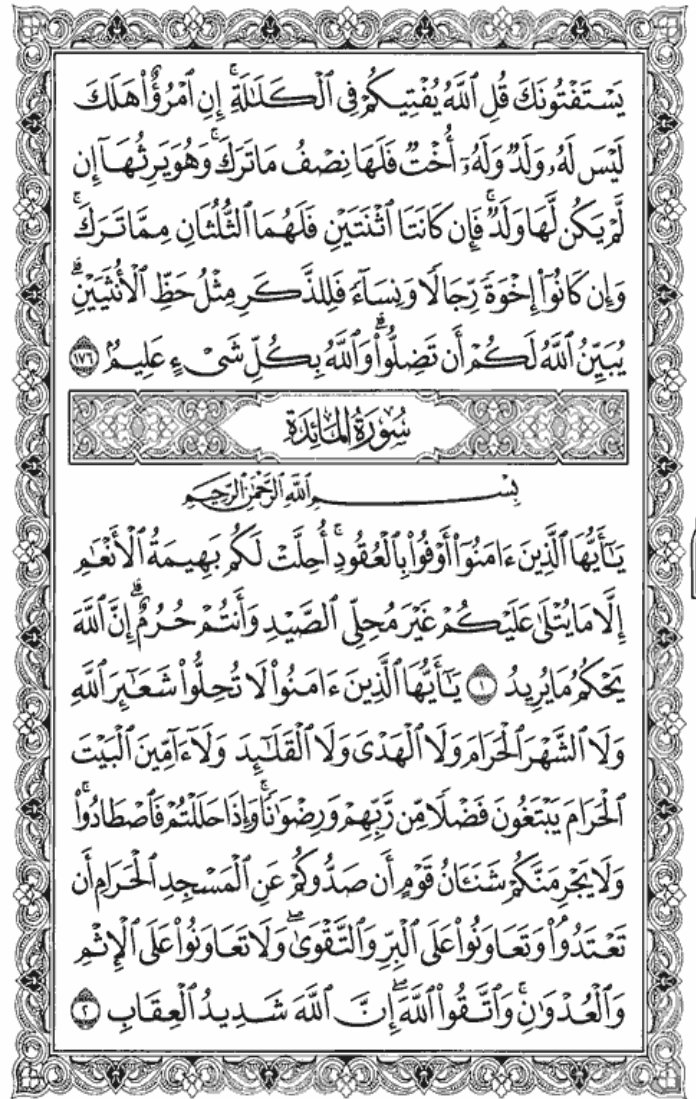 يَسْتَفْتُونَكَ قُلِ ٱللَّهُ يُفْتِيكُمْ فِى ٱلْكَلَٰلَةِ ۚ إِنِ ٱمْرُؤٌا۟ هَلَكَ
لَيْسَ لَهُۥ وَلَدٌ وَلَهُۥٓ أُخْتٌ فَلَهَا نِصْفُ مَا تَرَكَ ۚ وَهُوَ يَرِثُهَآ إِن
لَّمْ يَكُن لَّهَا وَلَدٌ ۚ فَإِن كَانَتَا ٱثْنَتَيْنِ فَلَهُمَا ٱلثُّلُثَانِ مِمَّا تَرَكَ ۚ
وَإِن كَانُوٓا۟ إِخْوَةً رِّجَالًا وَنِسَآءً فَلِلذَّكَرِ مِثْلُ حَظِّ ٱلْأُنثَيَيْنِ ۗ
يُبَيِّنُ ٱللَّهُ لَكُمْ أَن تَضِلُّوا۟ ۗ وَٱللَّهُ بِكُلِّ شَىْءٍ عَلِيمٌۢ ١٧٦
سُورَةُ المَائِدَةِ
بِسْمِ ٱللَّهِ ٱلرَّحْمَٰنِ ٱلرَّحِيمِ
يَٰٓأَيُّهَا ٱلَّذِينَ ءَامَنُوٓا۟ أَوْفُوا۟ بِٱلْعُقُودِ ۚ أُحِلَّتْ لَكُم بَهِيمَةُ ٱلْأَنْعَٰمِ
إِلَّا مَا يُتْلَىٰ عَلَيْكُمْ غَيْرَ مُحِلِّى ٱلصَّيْدِ وَأَنتُمْ حُرُمٌ ۗ إِنَّ ٱللَّهَ
يَحْكُمُ مَا يُرِيدُ ١ يَٰٓأَيُّهَا ٱلَّذِينَ ءَامَنُوا۟ لَا تُحِلُّوا۟ شَعَٰٓئِرَ ٱللَّهِ
وَلَا ٱلشَّهْرَ ٱلْحَرَامَ وَلَا ٱلْهَدْىَ وَلَا ٱلْقَلَٰٓئِدَ وَلَآ ءَآمِّينَ ٱلْبَيْتَ
ٱلْحَرَامَ يَبْتَغُونَ فَضْلًا مِّن رَّبِّهِمْ وَرِضْوَٰنًا ۚ وَإِذَا حَلَلْتُمْ فَٱصْطَادُوا۟ ۚ
وَلَا يَجْرِمَنَّكُمْ شَنَـَٔانُ قَوْمٍ أَن صَدُّوكُمْ عَنِ ٱلْمَسْجِدِ ٱلْحَرَامِ أَن
تَعْتَدُوا۟ ۘ وَتَعَاوَنُوا۟ عَلَى ٱلْبِرِّ وَٱلتَّقْوَىٰ ۖ وَلَا تَعَاوَنُوا۟ عَلَى ٱلْإِثْمِ
وَٱلْعُدْوَٰنِ ۚ وَٱتَّقُوا۟ ٱللَّهَ ۖ إِنَّ ٱللَّهَ شَدِيدُ ٱلْعِقَابِ ٢